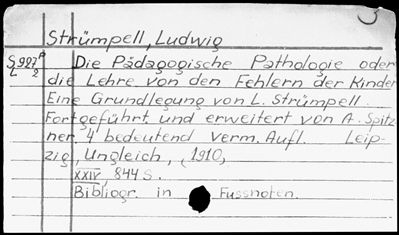 Strümpell, Ludwig
Die Pädagogische Pathologie oder
die Lehre von den Fehlern der Kinder
Eine Grundlegung von L. Strümpell.
Fortgeführt und erweitert von A. Spitz
ner. 4 bedeutend verm. Aufl. Leip-
zig, Ungleich, (1910,
XXIV, 844 S.
Bibliogr. in Fussnoten.